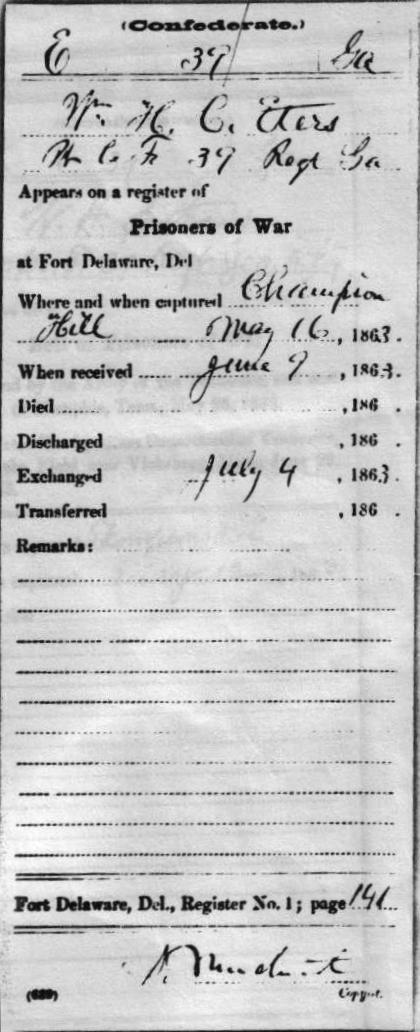 (Confederate.)
E 39 Ga
Wm H. C. Eters
Co. F 39 Regt Ga
Appears on a register of
Prisoners of War
at Fort Delaware, Del
Where and when captured Champion
Hill May 16, 1863.
When received June 9, 1863.
Died , 186 .
Discharged , 186 .
Exchanged July 4, 1863.
Transferred , 186 .
Remarks:
Fort Delaware, Del., Register No. 1; page 141
(639)
Copyist.